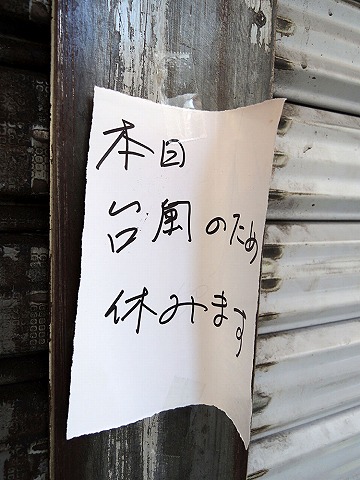 本日
台風のため
休みます